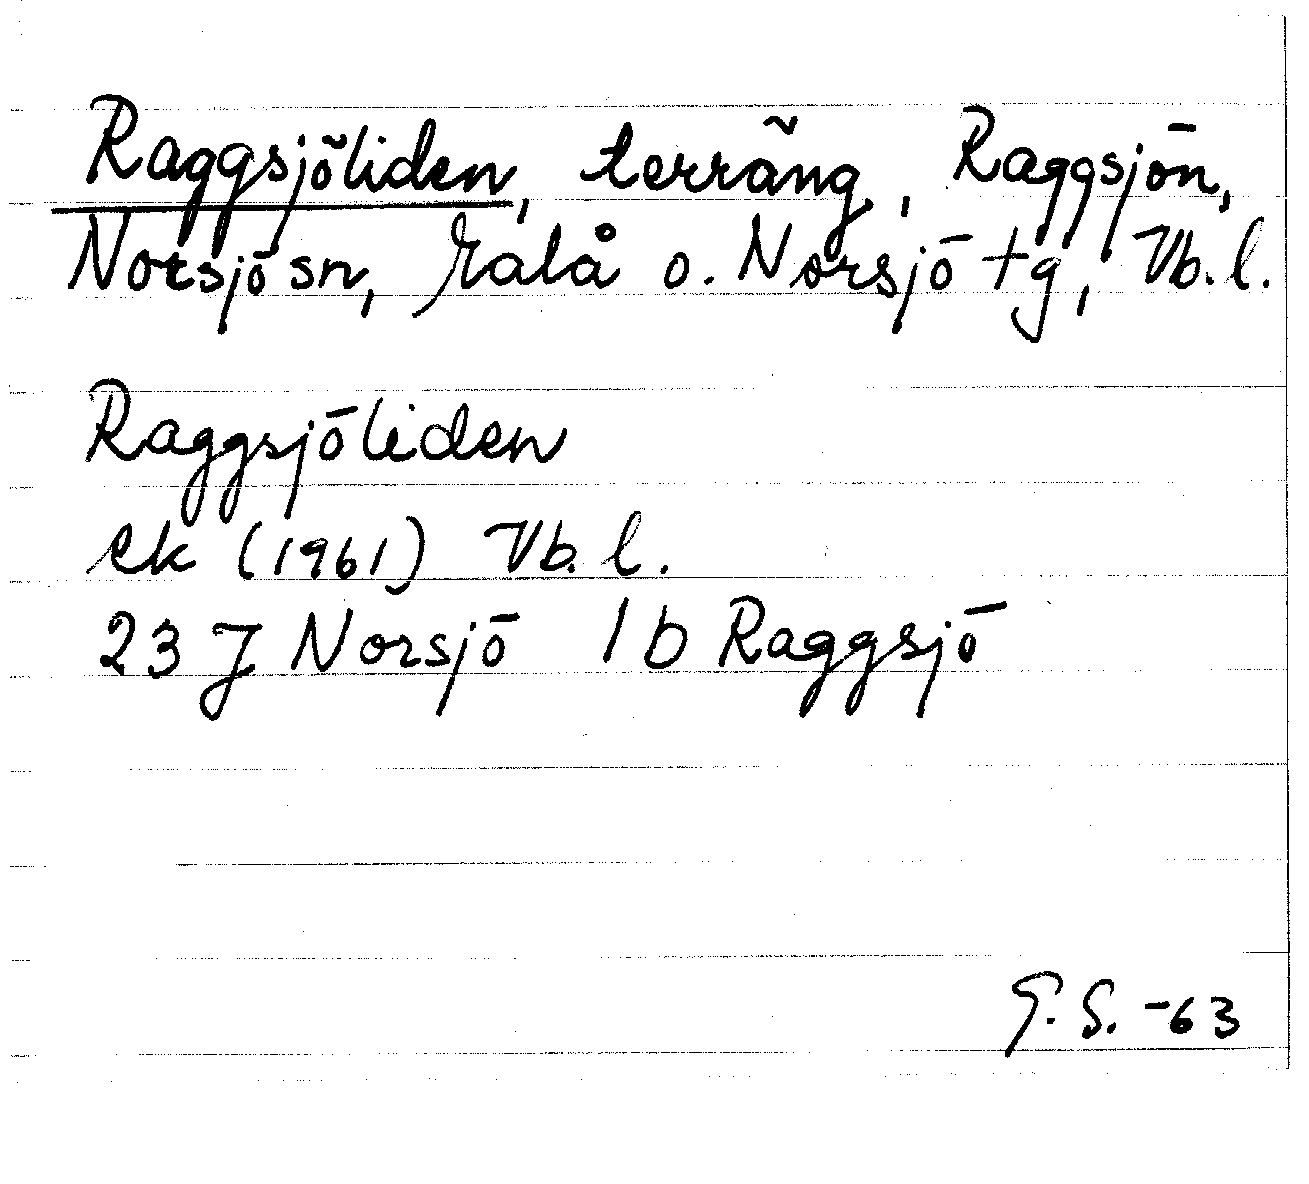 Raggsjöliden, terräng, Raggsjön,
Norsjö sn, Malå o. Norsjö tg, Vb. l.
Raggsjöliden
ek (1961) Vb. l.
23 J Norsjö 1 b Raggsjö
G. S. -63